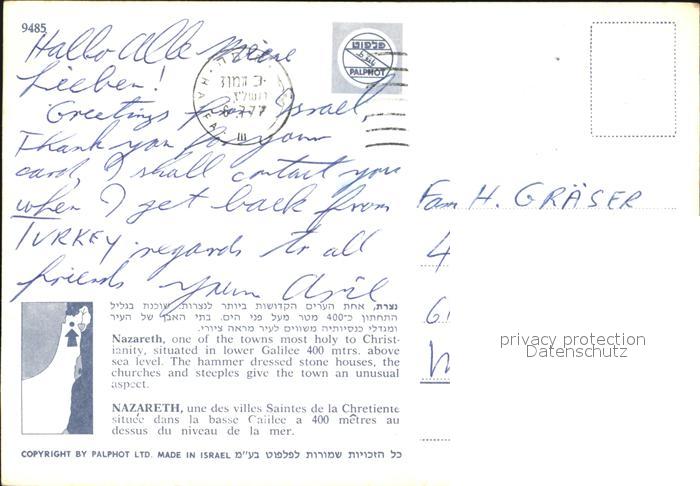 9485
Hallo Alle meine
Lieben!
Greetings from Israel,
Thank you for your
card, I shall contact you
when I get back from
TURKEY. regards to all
friends
פלפוט
PALPHOT
Fam H. GRÄSER
4
privacy protection
Datenschutz
נצרת, אחת הערים הקדושות ביותר לנצרות, שוכנת בגליל
התחתון כ־400 מטר מעל פני הים. בתי האבן של העיר
ומגדלי כנסיותיה משווים לעיר מראה ציורי.
Nazareth, one of the towns most holy to Christ-
ianity, situated in lower Galilee 400 mtrs. above
sea level. The hammer dressed stone houses, the
churches and steeples give the town an unusual
aspect.
NAZARETH, une des villes Saintes de la Chretiente
située dans la basse Galilee a 400 mêtres au
dessus du niveau de la mer.
COPYRIGHT BY PALPHOT LTD. MADE IN ISRAEL כל הזכויות שמורות לפלפוט בע"מ